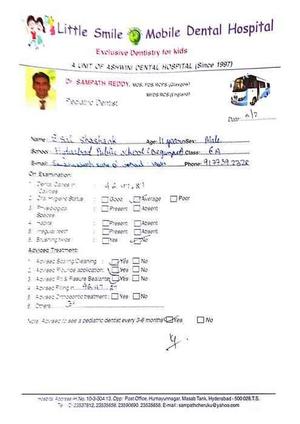 Little Smile Mobile Dental Hospital
Exclusive Dentistry for kids
A UNIT OF ASHWINI DENTAL HOSPITAL (Since 1997)
Dr. SAMPATH REDDY, MDS, FDS RCPS (Glasgow)
MFDS RCS (England)
Pediatric Dentist
Date:
Name: Shashank Age: 11 years Sex: Male
School: Hyderabad Public School (Begumpet) Class: 6A
E-mail: Phone:
On Examination:
1. Dental Caries in Cavities
2. Oral Hygiene Status : Good Average Poor
3. Physiological Spaces : Present Absent
4. Habits : Present Absent
5. Irregular teeth : Present Absent
6. Brushing twice : Yes No
Advised Treatment:
1. Advised Scaling/Cleaning : Yes No
2. Advised Flouride application : Yes No
3. Advised Pit & Fissure Sealants : Yes No
4. Advised Filling in
5. Advised Orthodontic treatment : Yes No
6. Others :
Note: Advised to see a pediatric dentist every 3-6 months Yes No
Hospital Address: H.No. 10-3-304/13, Opp: Post Office, Humayunnagar, Masab Tank, Hyderabad - 500 028. T.S.
E-mail: sampathcheruku@yahoo.com